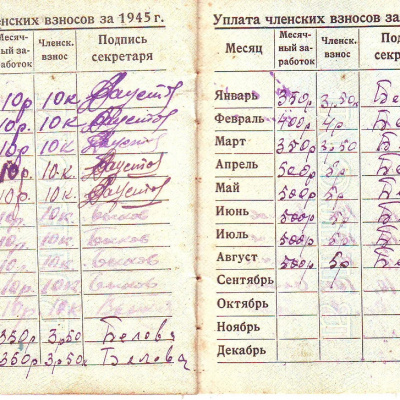 нских взносов за 1945 г.
Месяч-
ный за-
работок
Членск.
взнос
Подпись
секретаря
10р 10к Фаустов
10р. 10к. Фаустов
10р 10к Фаустов
10р. 10к. Фаустов
10р. 10к. Фаустов
10р. 10к.
10р. 10к.
10р. 10к.
10р. 10к.
10р. 10к.
350р 3р50 Белова
350р 3р50к Белова
Уплата членских взносов за
Месяц
Месяч-
ный за-
работок
Членск.
взнос
По
секре
Январь 350р 3р,50к Бе
Февраль 400р 4р Бе
Март 350р 3р50 Бе
Апрель 500р 5р. Бе
Май 500р 5р. Бе
Июнь 500р 5р. Бе
Июль 500р 5р. Бе
Август 500р 5р Бе
Сентябрь
Октябрь
Ноябрь
Декабрь